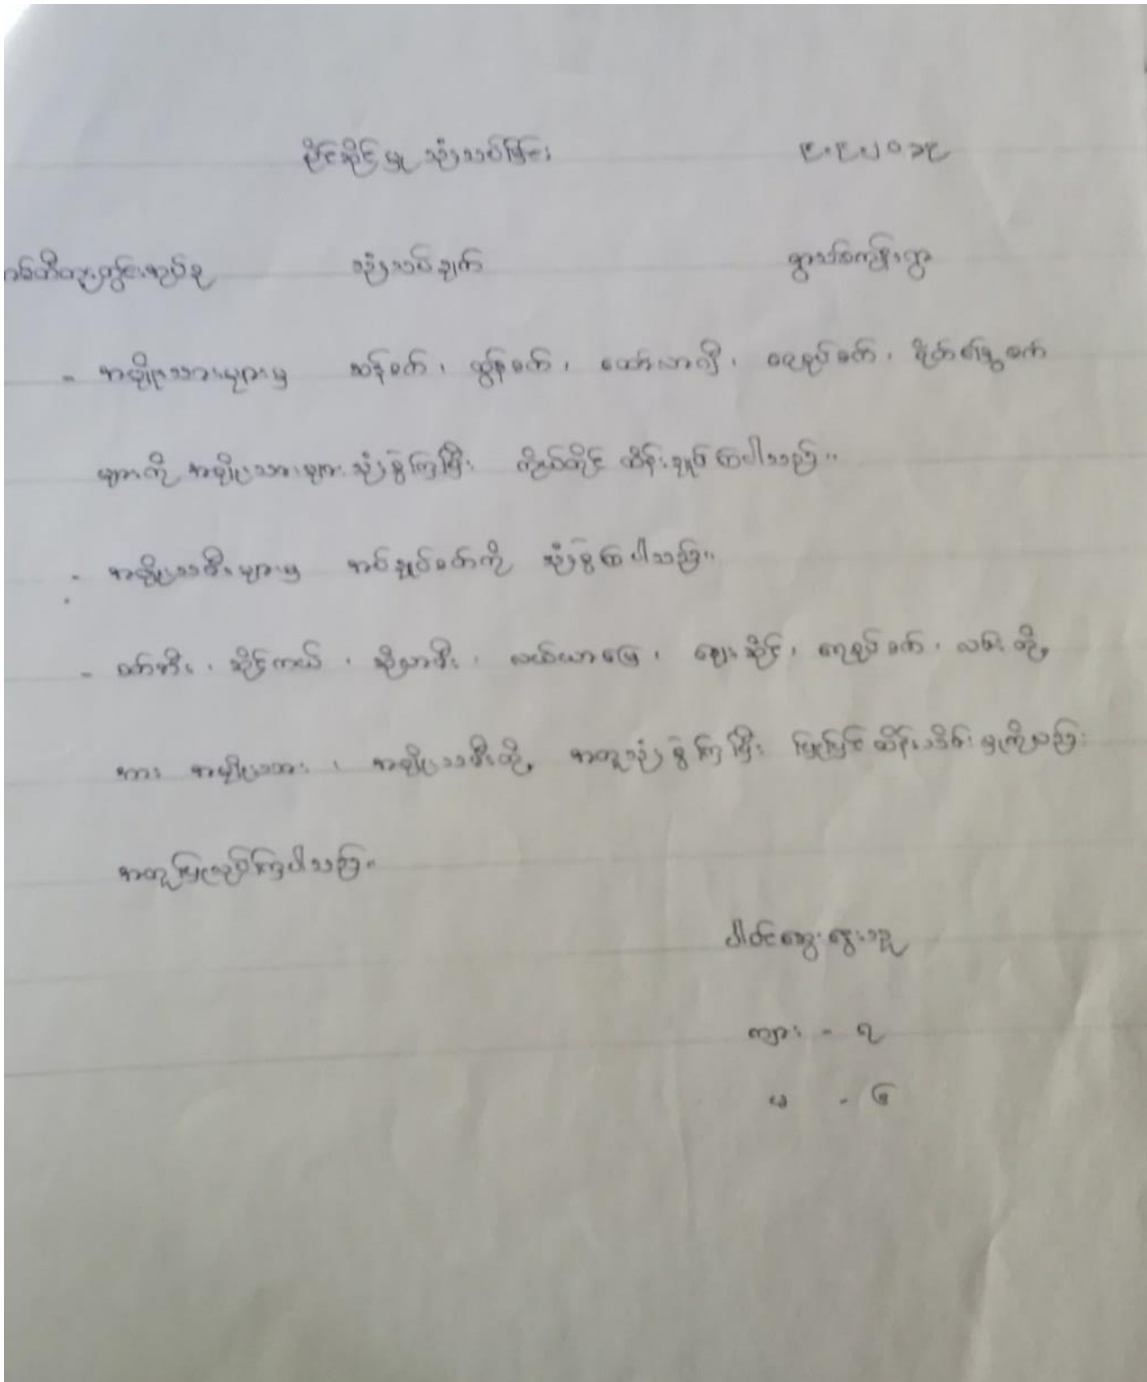 ပိုင်ဆိုင်မှု သုံးသပ်ခြင်း ၉.၉.၂၀၁၉
သုံးသပ်ချက် ရွာသစ်ကျိုးရွာ
- အမျိုးသားများမှ ဆန်စက်၊ ထွန်စက်၊ ထော်လာဂျီ၊ ရေစုပ်စက်၊
များကို အမျိုးသားများ သုံးစွဲကြပြီး ကိုယ်တိုင် ထိန်းချုပ်ကြပါသည်။
- အမျိုးသမီးများမှ အပ်ချုပ်စက်ကို သုံးစွဲကြပါသည်။
- စက်ဘီး၊ ဆိုင်ကယ်၊ ဆိုလာမီး၊ လယ်ယာမြေ၊ ဈေးဆိုင်၊ ရေစုပ်စက်၊ လမ်းတို့
အား အမျိုးသား၊ အမျိုးသမီးတို့ အတူသုံးစွဲကြပြီး ပြုပြင်ထိန်းသိမ်းမှုကိုလည်း
အတူပြုလုပ်ကြပါသည်။
ပါဝင်ဆွေးနွေးသူ
ကျား - ၇
မ - ၆